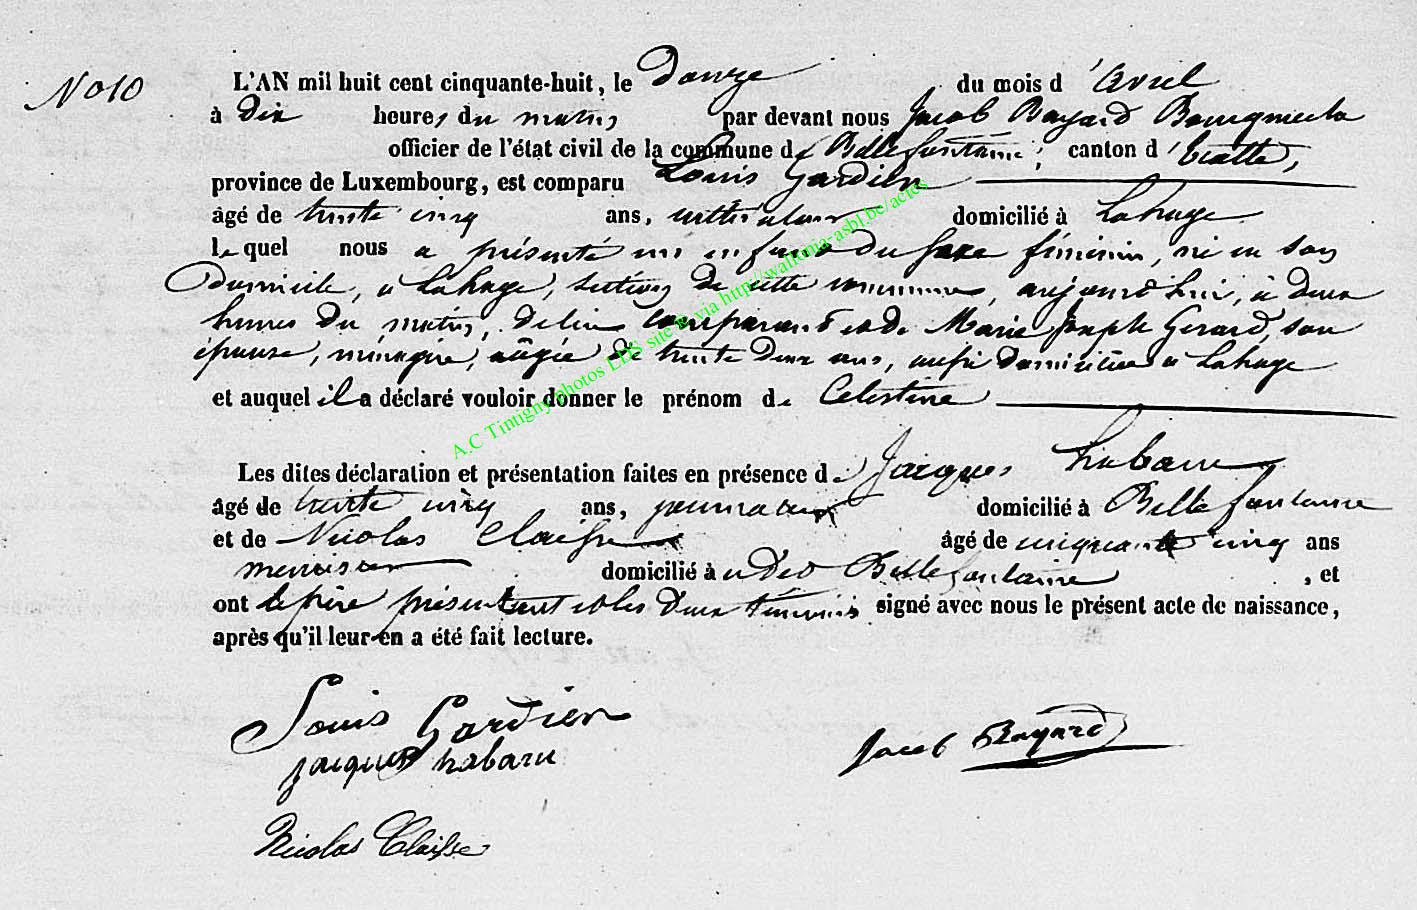 No 10
L'AN mil huit cent cinquante-huit, le Douze du mois d'Avril
à Dix heures du matin par devant nous Jacob Bayard Bourgmestre
officier de l'état civil de la commune de Bellefontaine, canton d'Etalle,
province de Luxembourg, est comparu Louis Gardien
âgé de trente cinq ans, cultivateur domicilié à Lahage
lequel nous a présenté un enfant du sexe féminin, né en son
domicile, à Lahage, section de cette commune, aujourd'hui, à deux
heures du matin, de lui comparant et de Marie Joseph Gérard, son
épouse, ménagère, âgée de trente deux ans, aussi domiciliée à Lahage
et auquel il a déclaré vouloir donner le prénom de Celestine
Les dites déclaration et présentation faites en présence de Jacques habaru
âgé de trente cinq ans, journalier domicilié à Bellefontaine
et de Nicolas Claisse âgé de cinquante cinq ans
menuisier domicilié à udeo Bellefontaine, et
ont le père présentant et les deux témoins signé avec nous le présent acte de naissance,
après qu'il leur en a été fait lecture.
Louis Gardien
jacques habaru
Jacob Bayard
Nicolas Claisse
A.C Tintigny photos LDS site & via http://wallonia-asbl.be/actes